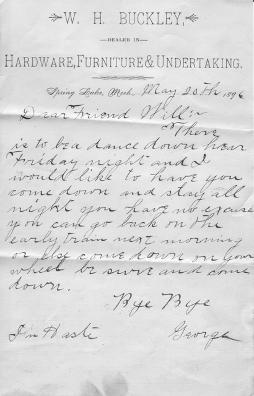 W. H. BUCKLEY,
DEALER IN
HARDWARE, FURNITURE & UNDERTAKING.
Spring Lake, Mich. May 20th 1896
Dear Friend Will:r
There
is to be a dance down hear
Friday night and I
would like to have you
come down and stay all
night you have no excuse
you can go back on the
early train next morning
or else come down on your
wheel be swre and come
down.
Bye Bye
In Haste George